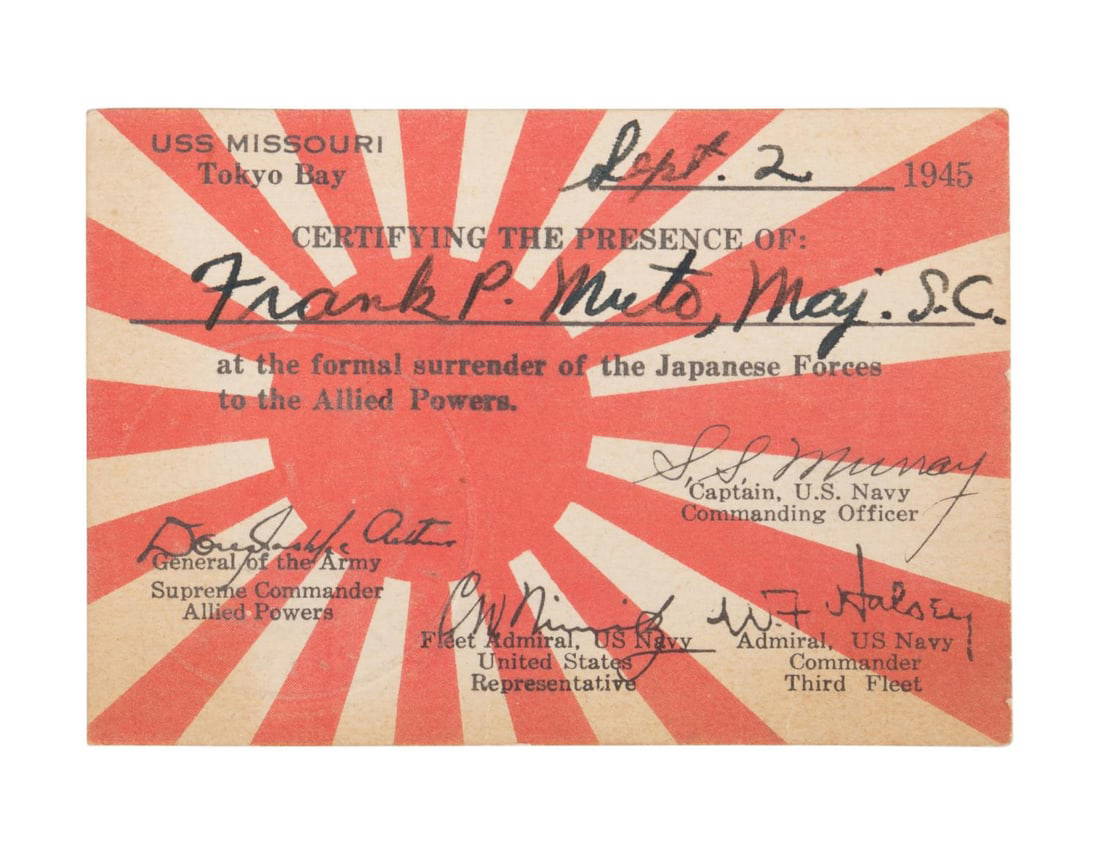 USS MISSOURI
Tokyo Bay
Sept. 2 1945
CERTIFYING THE PRESENCE OF:
Frank P. Meto, Maj. S.C.
at the formal surrender of the Japanese Forces
to the Allied Powers.
S. S. Murray
Captain, U.S. Navy
Commanding Officer
Douglas MacArthur
General of the Army
Supreme Commander
Allied Powers
C W Nimitz
Fleet Admiral, US Navy
United States
Representative
W. F Halsey
Admiral, US Navy
Commander
Third Fleet